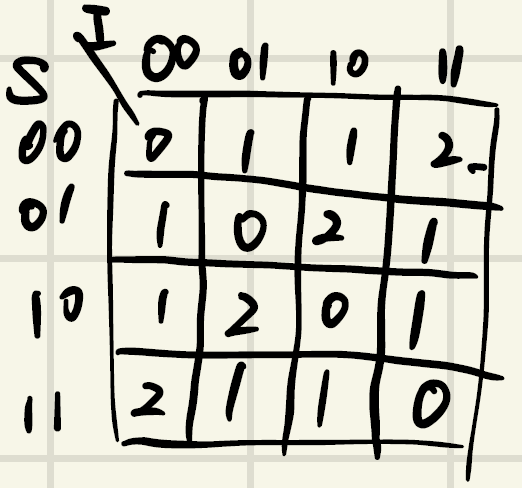 I
S 00 01 10 11
00 0 1 1 2
01 1 0 2 1
10 1 2 0 1
11 2 1 1 0